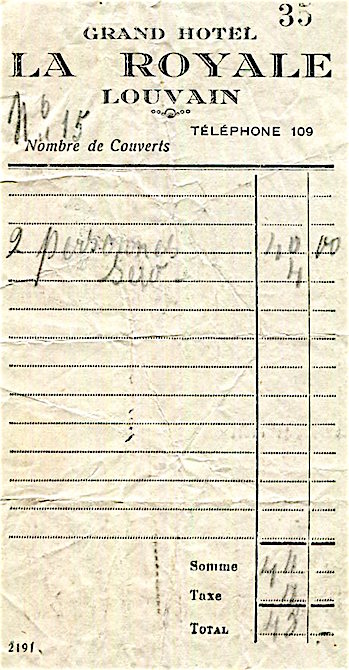 35
GRAND HOTEL
LA ROYALE
LOUVAIN
TÉLÉPHONE 109
Nombre de Couverts
2 personnes 40 00
4
Somme 44
Taxe
TOTAL
2191.